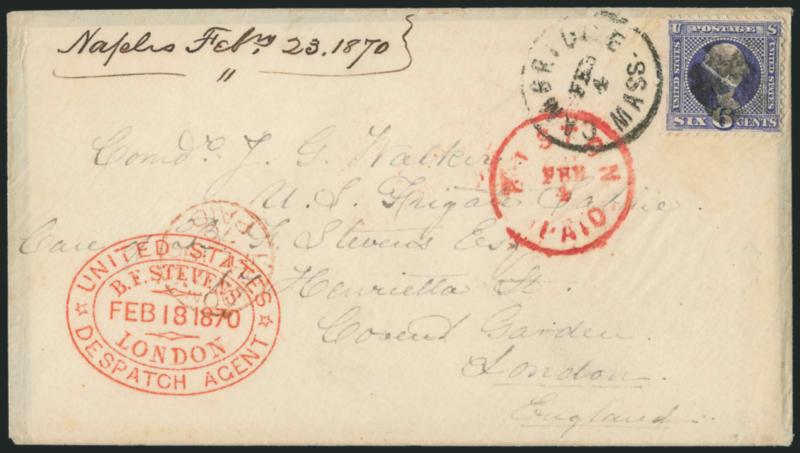 Naples Febry 23. 1870
"
CAMBRIDGE MASS.
FEB
4
U S
POSTAGE
UNITED STATES
UNITED STATES
SIX 6 CENTS
BOSTON
FEB
4
PAID
Comdr. J. G. Walker
U. S. Frigate Sabine
Care B. F. Stevens Esq
Henrietta St.
Covent Garden
London.
England
PAID
UNITED STATES
B.F. STEVENS
FEB 18 1870
LONDON
DESPATCH AGENT